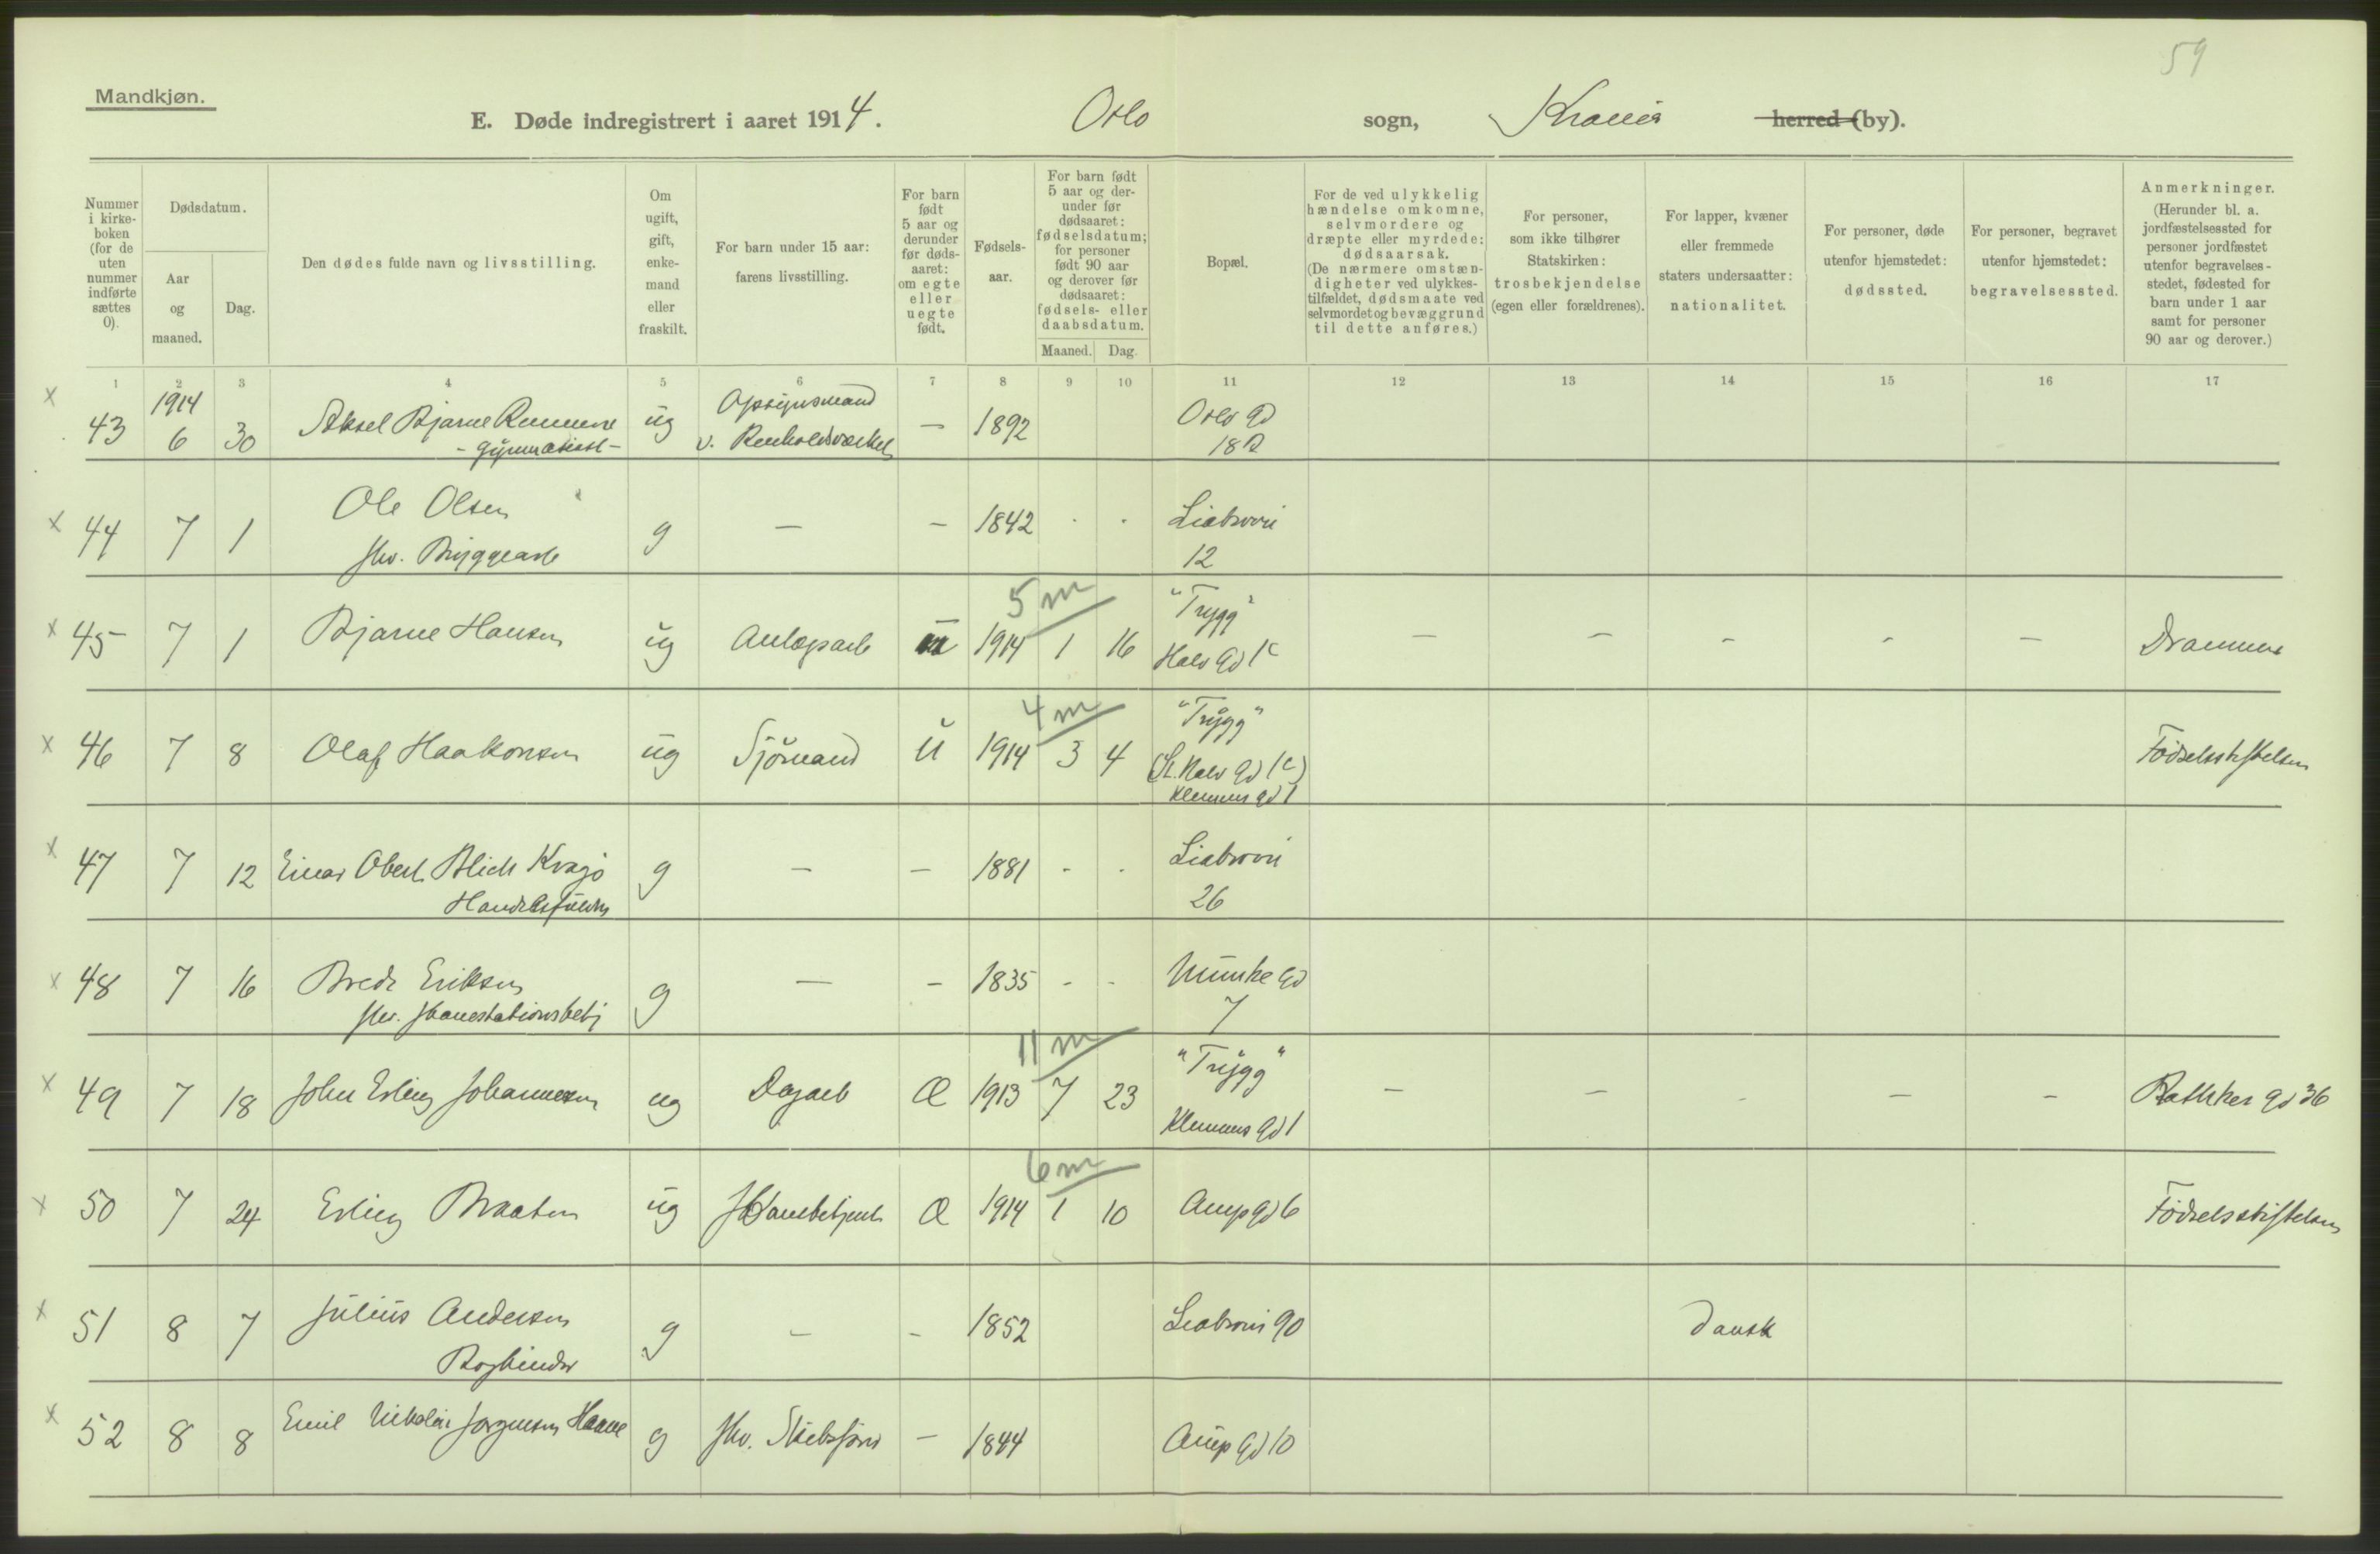 59
Mandkjøn.
E. Døde indregistrert i aaret 1914. Oslo sogn, herred (by).
Nummer i kirkeboken (for de uten nummer indførte sættes 0).
Dødsdatum.
Aar og maaned.
Dag.
Den dødes fulde navn og livsstilling.
Om ugift, gift, enkemand eller fraskilt.
For barn under 15 aar: farens livsstilling.
For barn født 5 aar og derunder før dødsaaret: om egte eller uegte født.
Fødselsaar.
For barn født 5 aar og derunder før dødsaaret: fødselsdatum; for personer født 90 aar og derover før dødsaaret: fødsels- eller daabsdatum.
Maaned. Dag.
Bopæl.
For de ved ulykkelig hændelse omkomne, selvmordere og dræpte eller myrdede: dødsaarsak. (De nærmere omstændigheter ved ulykkestilfældet, dødsmaate ved selvmordet og bevæggrund til dette anføres.)
For personer, som ikke tilhører Statskirken: trosbekjendelse (egen eller forældrenes).
For lapper, kvæner eller fremmede staters undersaatter: nationalitet.
For personer, døde utenfor hjemstedet: dødssted.
For personer, begravet utenfor hjemstedet: begravelsessted.
Anmerkninger. (Herunder bl. a. jordfæstelsessted for personer jordfæstet utenfor begravelsesstedet, fødested for barn under 1 aar samt for personer 90 aar og derover.)
1 2 3 4 5 6 7 8 9 10 11 12 13 14 15 16 17
x 43 1914 6 30 Aksel Bjarne ug Opsynsmand v. Renholdsverket — 1892 Oslo gd 18
x 44 7 1 Ole Olsen fhv. Bryggearb g — — 1842 - - 12
5 m
x 45 7 1 Bjarne Hansen ug Anlægsarb 1914 1 16 "Trygg" Halv gd 1c — — - - — Drammen
4 m
x 46 7 8 Olaf Haakonsen ug Sjømand U 1914 3 4 "Trygg" (St. Halv gd 1c) Klemens gd 1 Fødselsstiftelsen
x 47 7 12 Einar Blich g — — 1881 - - 26
x 48 7 16 Brede Eriksen fhv. g — — 1835 - - Munke gd 7
11 m
x 49 7 18 John Erling Johannesen ug Dagarb Æ 1913 7 23 "Trygg" Klemens gd 1 — — - — — Rathkes gd 36
6 m
x 50 7 24 Erling Braaten ug Æ 1914 1 10 gd 6 Fødselsstiftelsen
x 51 8 7 Julius Andersen Bogbinder g — - 1852 90 dansk
x 52 8 8 Emil Nikolai Jørgensen g fhv. — 1844 gd 10